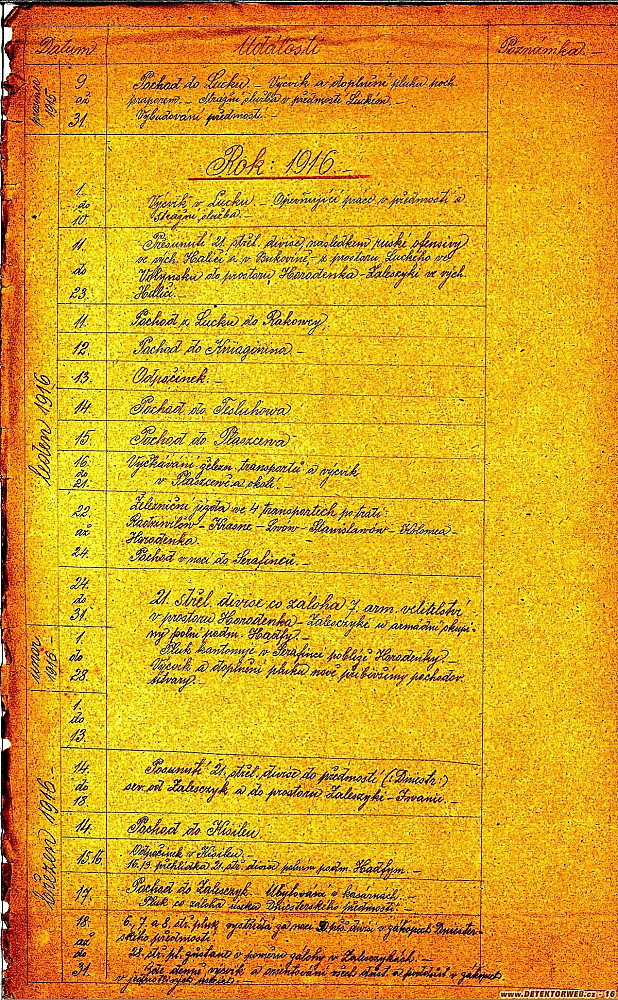 Datum Události Poznámka. –
prosinec 1915
9 až 31. Pochod do Lucku. – Výcvik a doplnění pluku poch.
praporem. – Strážní služba v předmostí Luckém. –
Vybudování předmostí. –
Rok: 1916. –
leden 1916
1. do 10. Výcvik v Lucku. – Opevňující práce v předmostí a
strážní služba. –
11. do 23. Přesunutí 21. střel. divise, následkem ruské ofensivy
ve vých. Haliči a v Bukovině, – z prostoru Luckého ve
Volynsku do prostoru Horodenka – Zaleszyki ve vých.
Haliči. –
11. Pochod z Lucku do Rakowcy.
12. Pochod do Kniaginina. –
13. Odpočinek. –
14. Pochod do Tesluhowa
15. Pochod do Plaszcewa –
16. do 21. Vyčkávání železn. transportů a výcvik
v Plaszcewě a okolí.
22. až 24. Železniční jízda ve 4 transportech po trati:
Radziwilów – Krasne – Lwów – Stanislawów – Kolomea –
Horodenka.
Pochod v noci do Serafinců. –
24. do 31. 21. střel. divise co záloha 7. arm. velitelství
v prostoru Horodenka – Zalesczyki u armádní skupi-
ny polní podm. Hadfy. –
únor 1916 –
1. do 28. Pluk kantonuje v Serafinci poblíže Horodenky. –
Výcvik a doplnění pluku nově přibývšími pochodov.
útvary. –
březen 1916 –
1. do 13.
14. do 18. Posunutí 21. střel. divise do předmostí (: Dniestr :)
sev. od Zalesczyk a do prostoru Zaleszyki – Iwanie. –
14. Pochod do Kisileu.
15. 16. Odpočinek v Kisileu.
16./3. přehlídka 21. stř. divise polním podm. Hadfym. –
17. Pochod do Zalesczyk. – Ubytování v kasárnách. –
Pluk co záloha úseku Dniesterského předmostí.
18. až do 31. 6, 7. a 8. stř. pluk vystřídá za noci pěš. divisi v zákopech Dniester-
ského předmostí.
28. stř. pl. zůstane v poměru zálohy v Zalesczykách. –
Zde denně výcvik a orientování všech důst. a poddůst. v zákopech
v jednotlivých úsecích. –
www.DETEKTORWEB.cz - 16